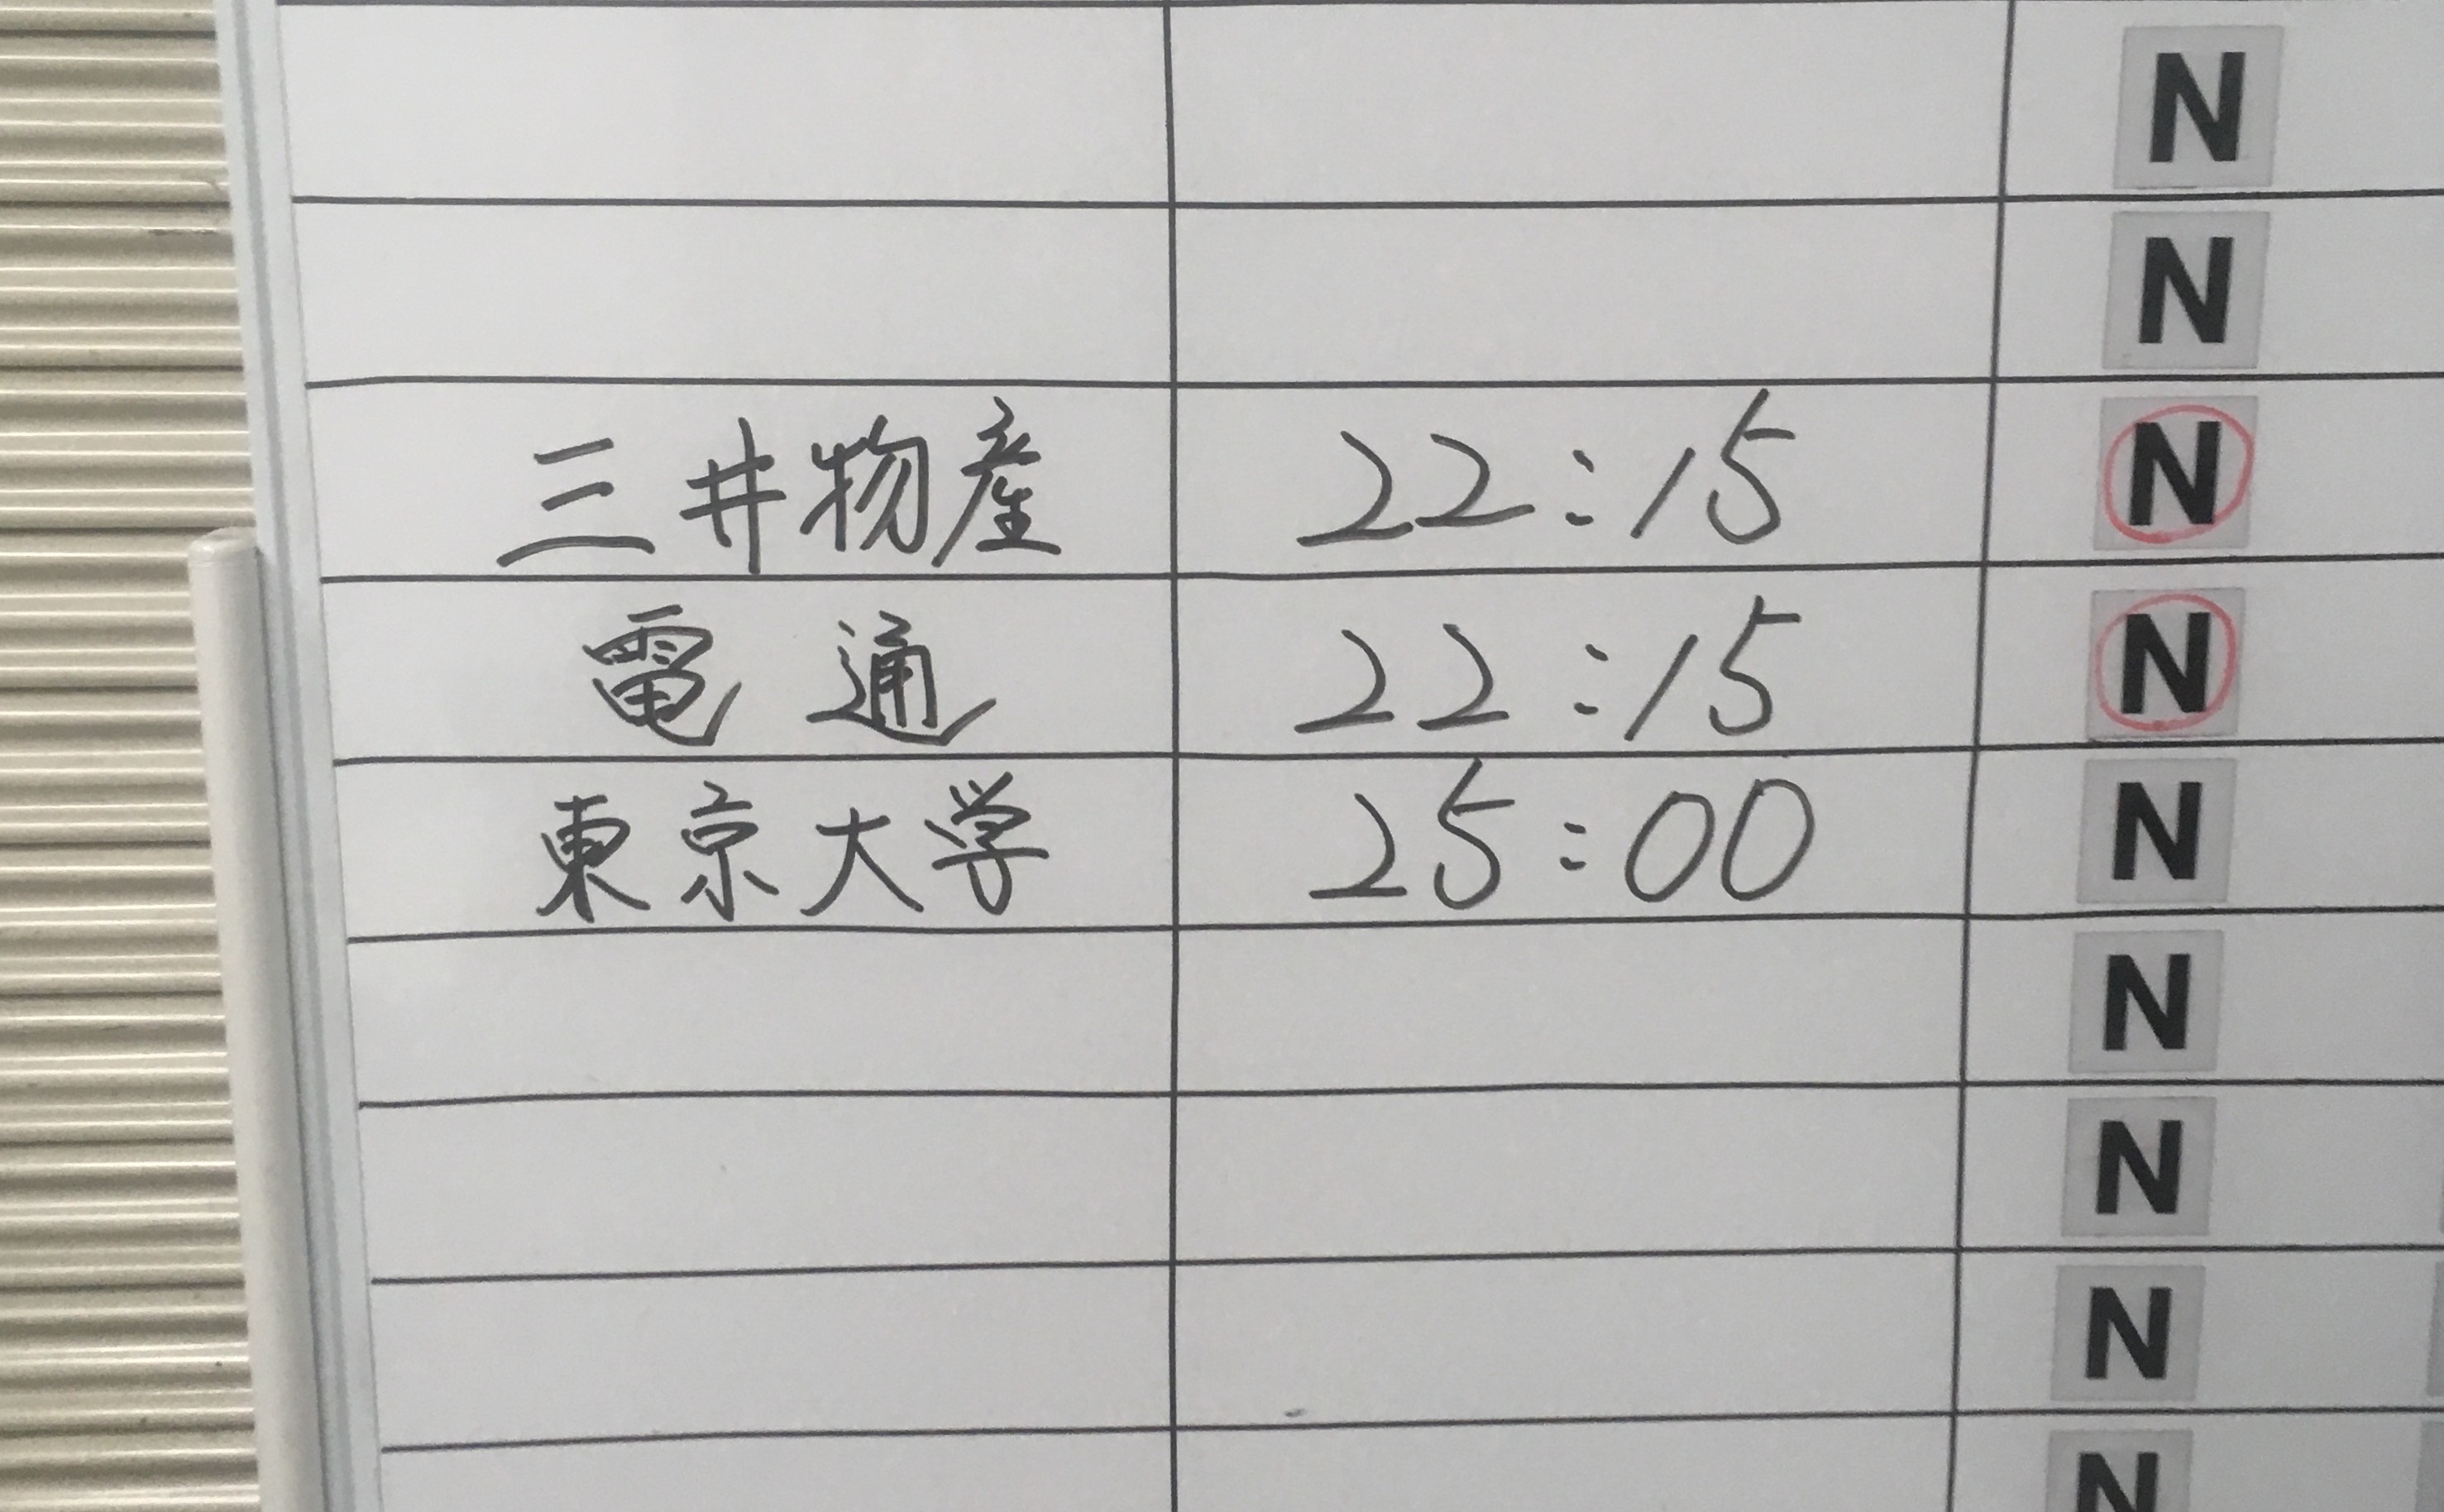 N
N
三井物産 22:15 N
電通 22:15 N
東京大学 25:00 N
N
N
N
N